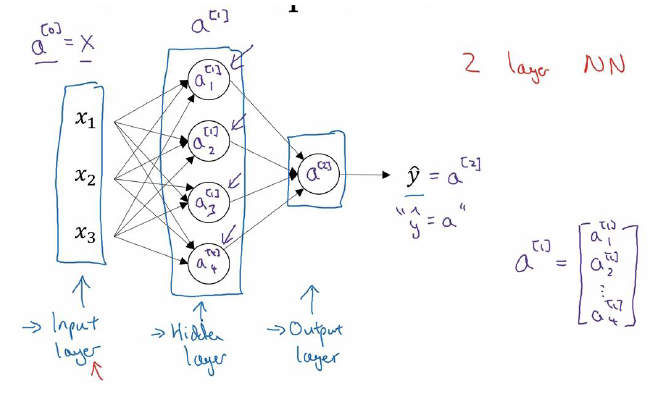 a^[0] = X
a^[1]
2 layer NN
x₁
x₂
x₃
a₁^[1]
a₂^[1]
a₃^[1]
a₄^[1]
a^[2]
ŷ = a^[2]
"ŷ = a"
a^[1] = [a₁^[1]
a₂^[1]
⋮
a₄^[1]]
→ Input
layer
→ Hidden
layer
→ Output
layer